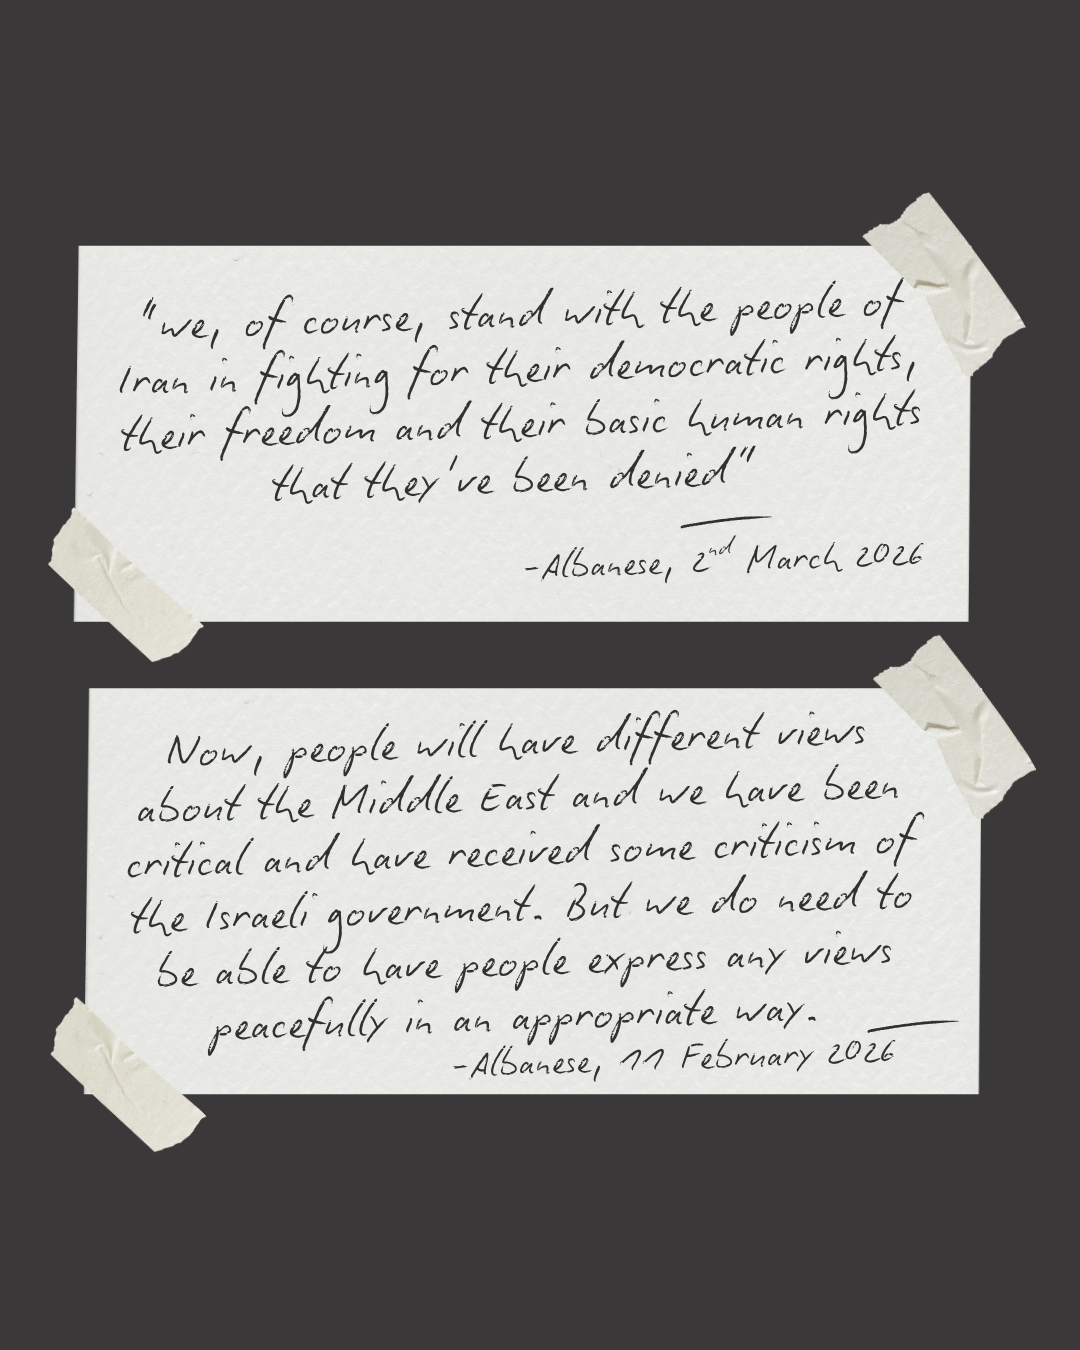 "we, of course, stand with the people of
Iran in fighting for their democratic rights,
their freedom and their basic human rights
that they've been denied"
-Albanese, 2nd March 2026
Now, people will have different views
about the Middle East and we have been
critical and have received some criticism of
the Israeli government. But we do need to
be able to have people express any views
peacefully in an appropriate way.
-Albanese, 11 February 2026